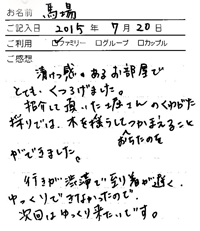 お名前 馬場
ご記入日 2015年7月20日
ご利用 ☑ファミリー □グループ □カップル
ご感想
清け感のあるお部屋で
とても くつろげました。
紹介して頂いた
採りでは、木を揺らしてつかまえること
おちたのを
ができました。
行きが渋滞で到着が遅く
ゆっくりできなかったので、
次回はゆっくり来たいです。